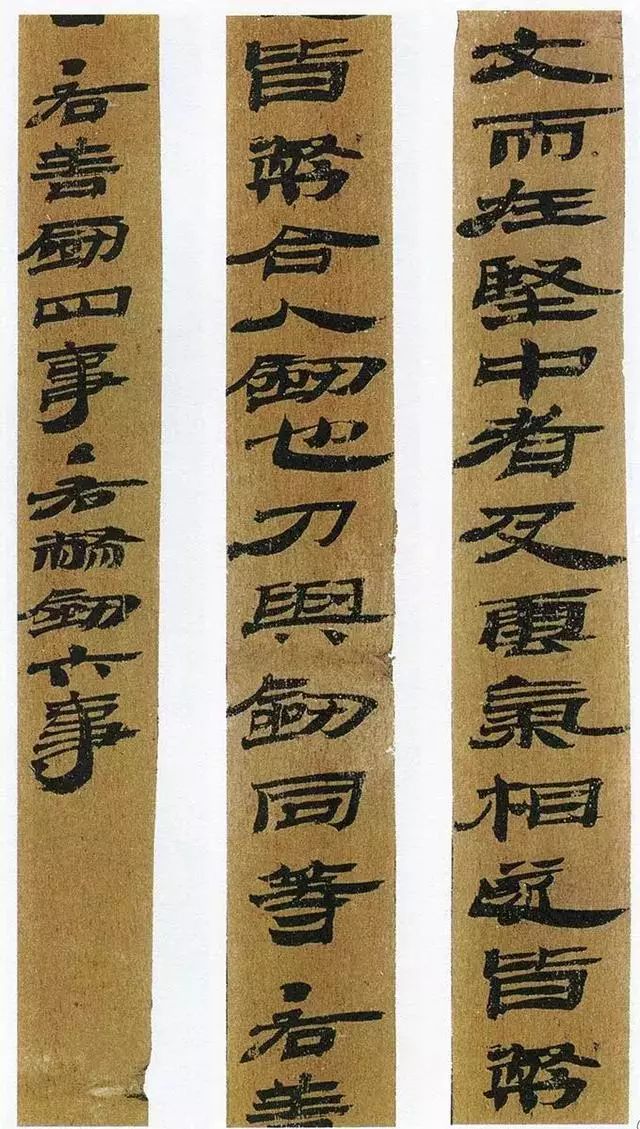 文而在堅中者及雲氣相遂皆幣
皆幣合人劍也刀與劍同等·右善
·右善劍四事·右幣劍六事